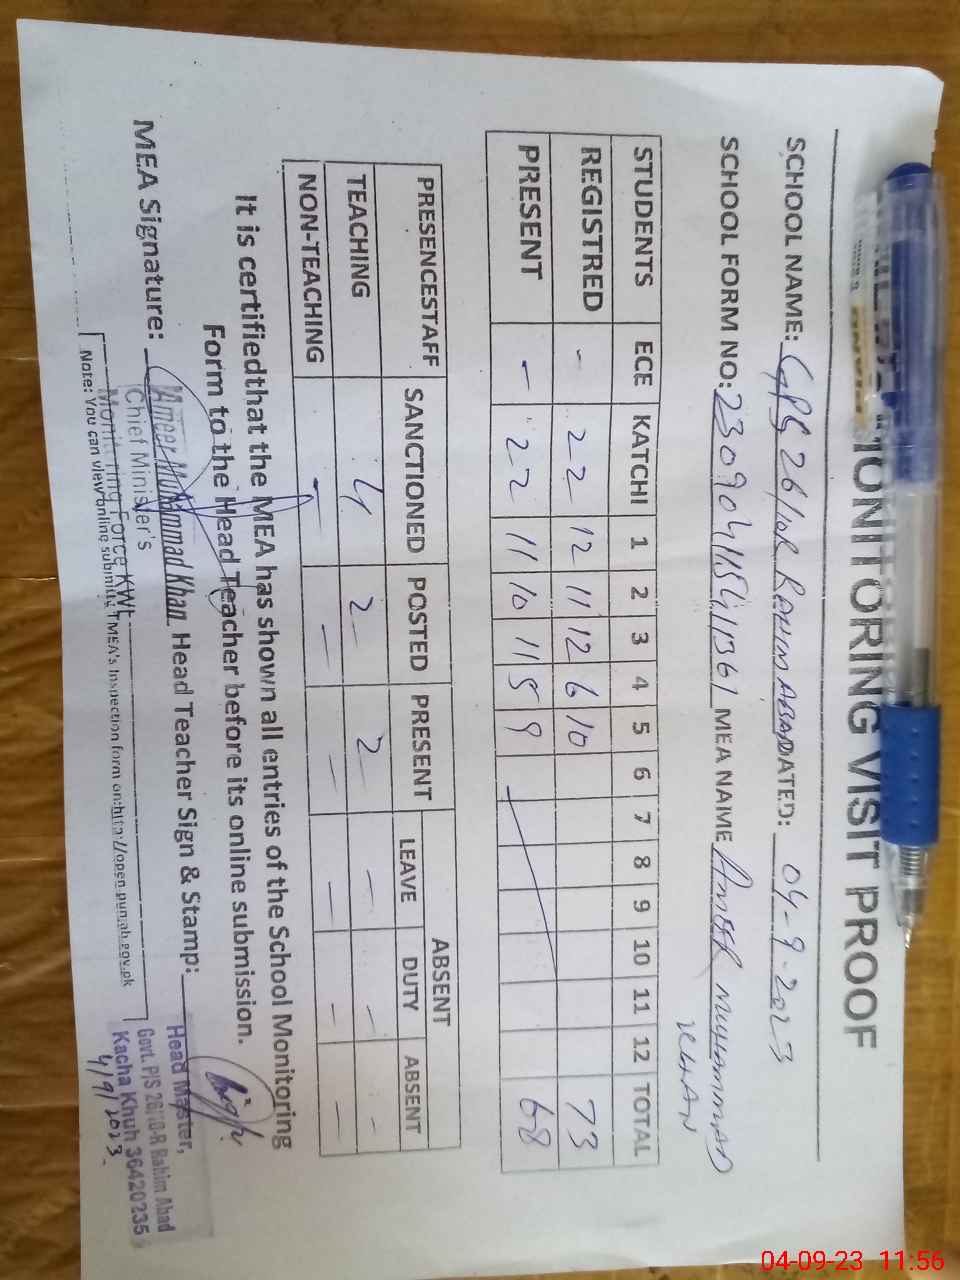 MONITORING VISIT PROOF
SCHOOL NAME: GPS 26/10R RAHIM ABAD DATED: 04-9-2023
SCHOOL FORM NO: MEA NAME AMEER MUHAMMAD
KHAN
STUDENTS ECE KATCHI 1 2 3 4 5 6 7 8 9 10 11 12 TOTAL
REGISTRED - 22 12 11 12 6 10 73
PRESENT - 22 11 10 11 5 9 68
PRESENCESTAFF SANCTIONED POSTED PRESENT ABSENT
LEAVE DUTY ABSENT
TEACHING 4 2 2 - - -
NON-TEACHING - - - - - -
It is certifiedthat the MEA has shown all entries of the School Monitoring
Form to the Head Teacher before its online submission.
MEA Signature: Head Teacher Sign & Stamp:
Ameer Muhammad Khan
Chief Minister's
Monitoring Force KWL
Note: You can view online submitted MEA's Inspection form on:http://open.punjab.gov.pk
Head Master,
Govt. P/S 26/10-R Rahim Abad
Kacha Khuh 36420235
4/9/2023
04-09-23 11:56